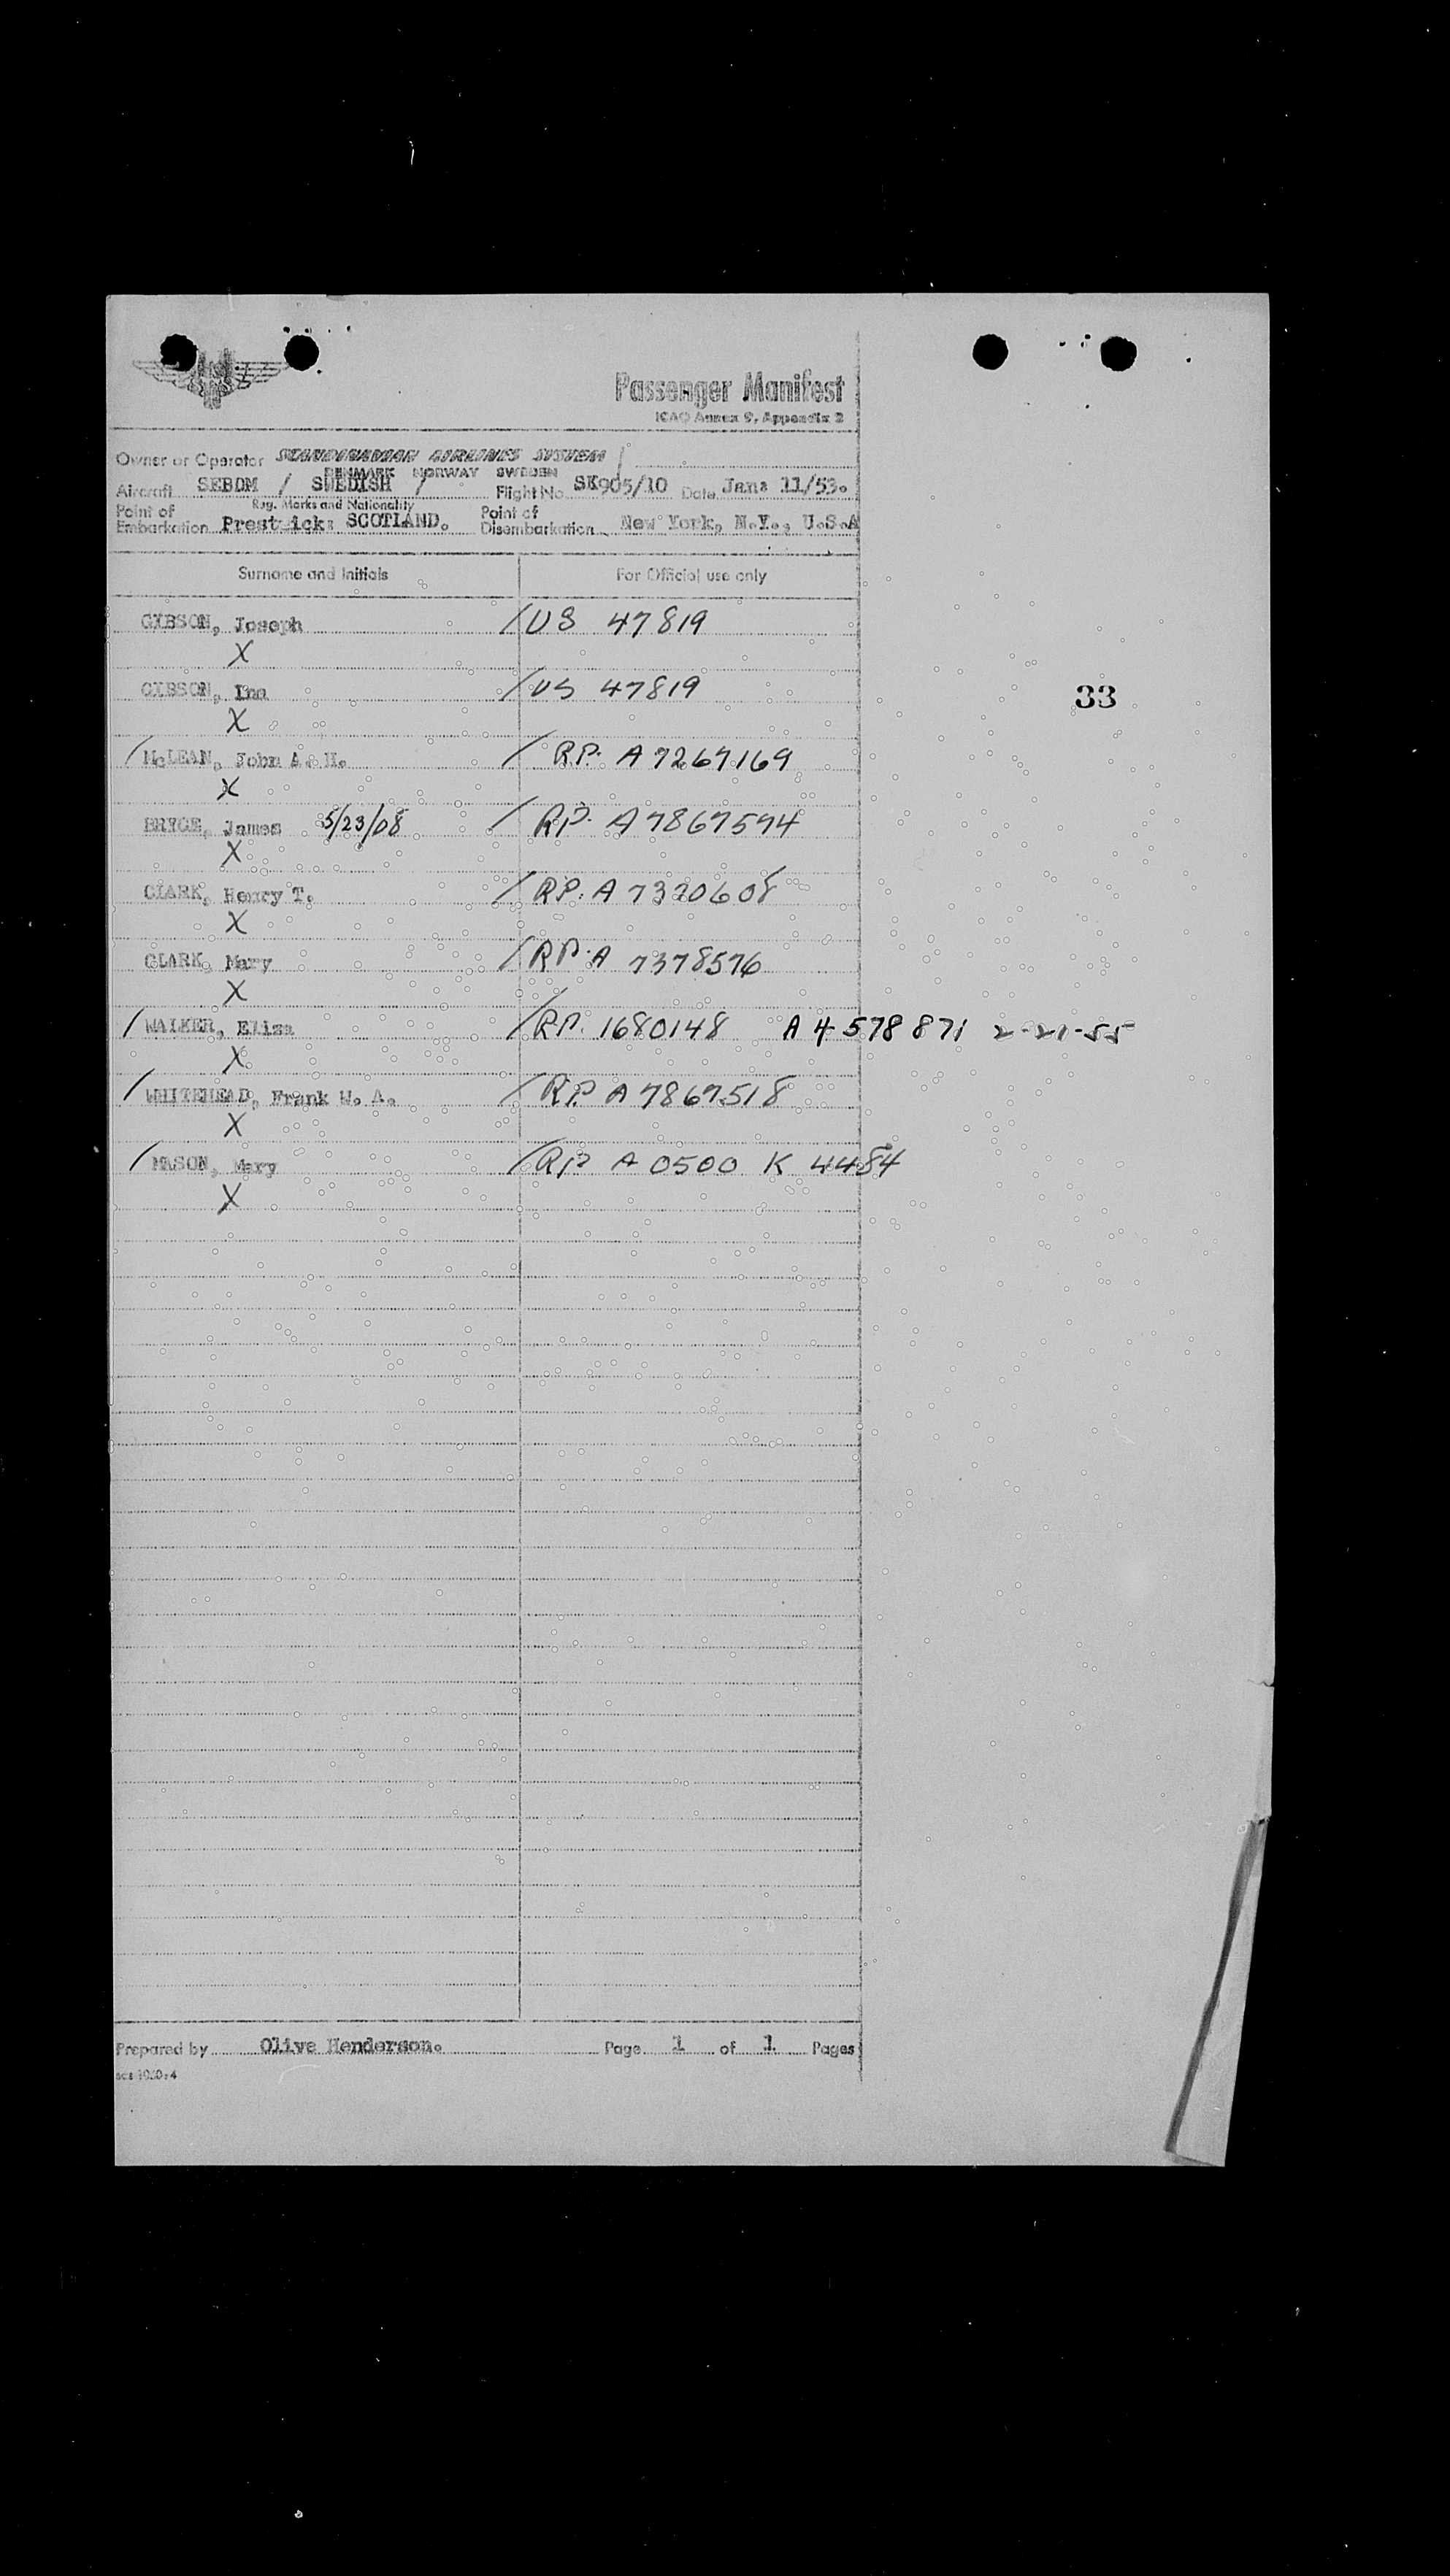 Passenger Manifest
ICAO Annex 9, Appendix 2
Owner or Operator SCANDINAVIAN AIRLINES SYSTEM /
DENMARK NORWAY SWEDEN
Aircraft SEBDM / SWEDISH / Flight No. SK905/10 Date Jan: 11/53.
Reg. Marks and Nationality
Point of Embarkation Prestwick: SCOTLAND. Point of Disembarkation New York, N.Y., U.S.A
Surname and Initials For Official use only
GIBSON, Joseph / US 47819
X
GIBSON, Ina / US 47819
X
33
/ McLEAN, John A. H. / RP. A7267169
X
BRYCE, James 5/23/08 / RP. A7867574
X
CLARK, Henry T. / RP. A 7320608
X
CLARK, Mary / RP. A 7378576
X
/ WALKER, Eliza / RP. 1680148 A 4 578 871 2-21-55
X
/ WHITEHEAD, Frank W. A. / RP A 7867518
X
/ MASON, Mary / RP A 0500 K 4484
X
Prepared by Olive Henderson. Page 1 of 1 Pages